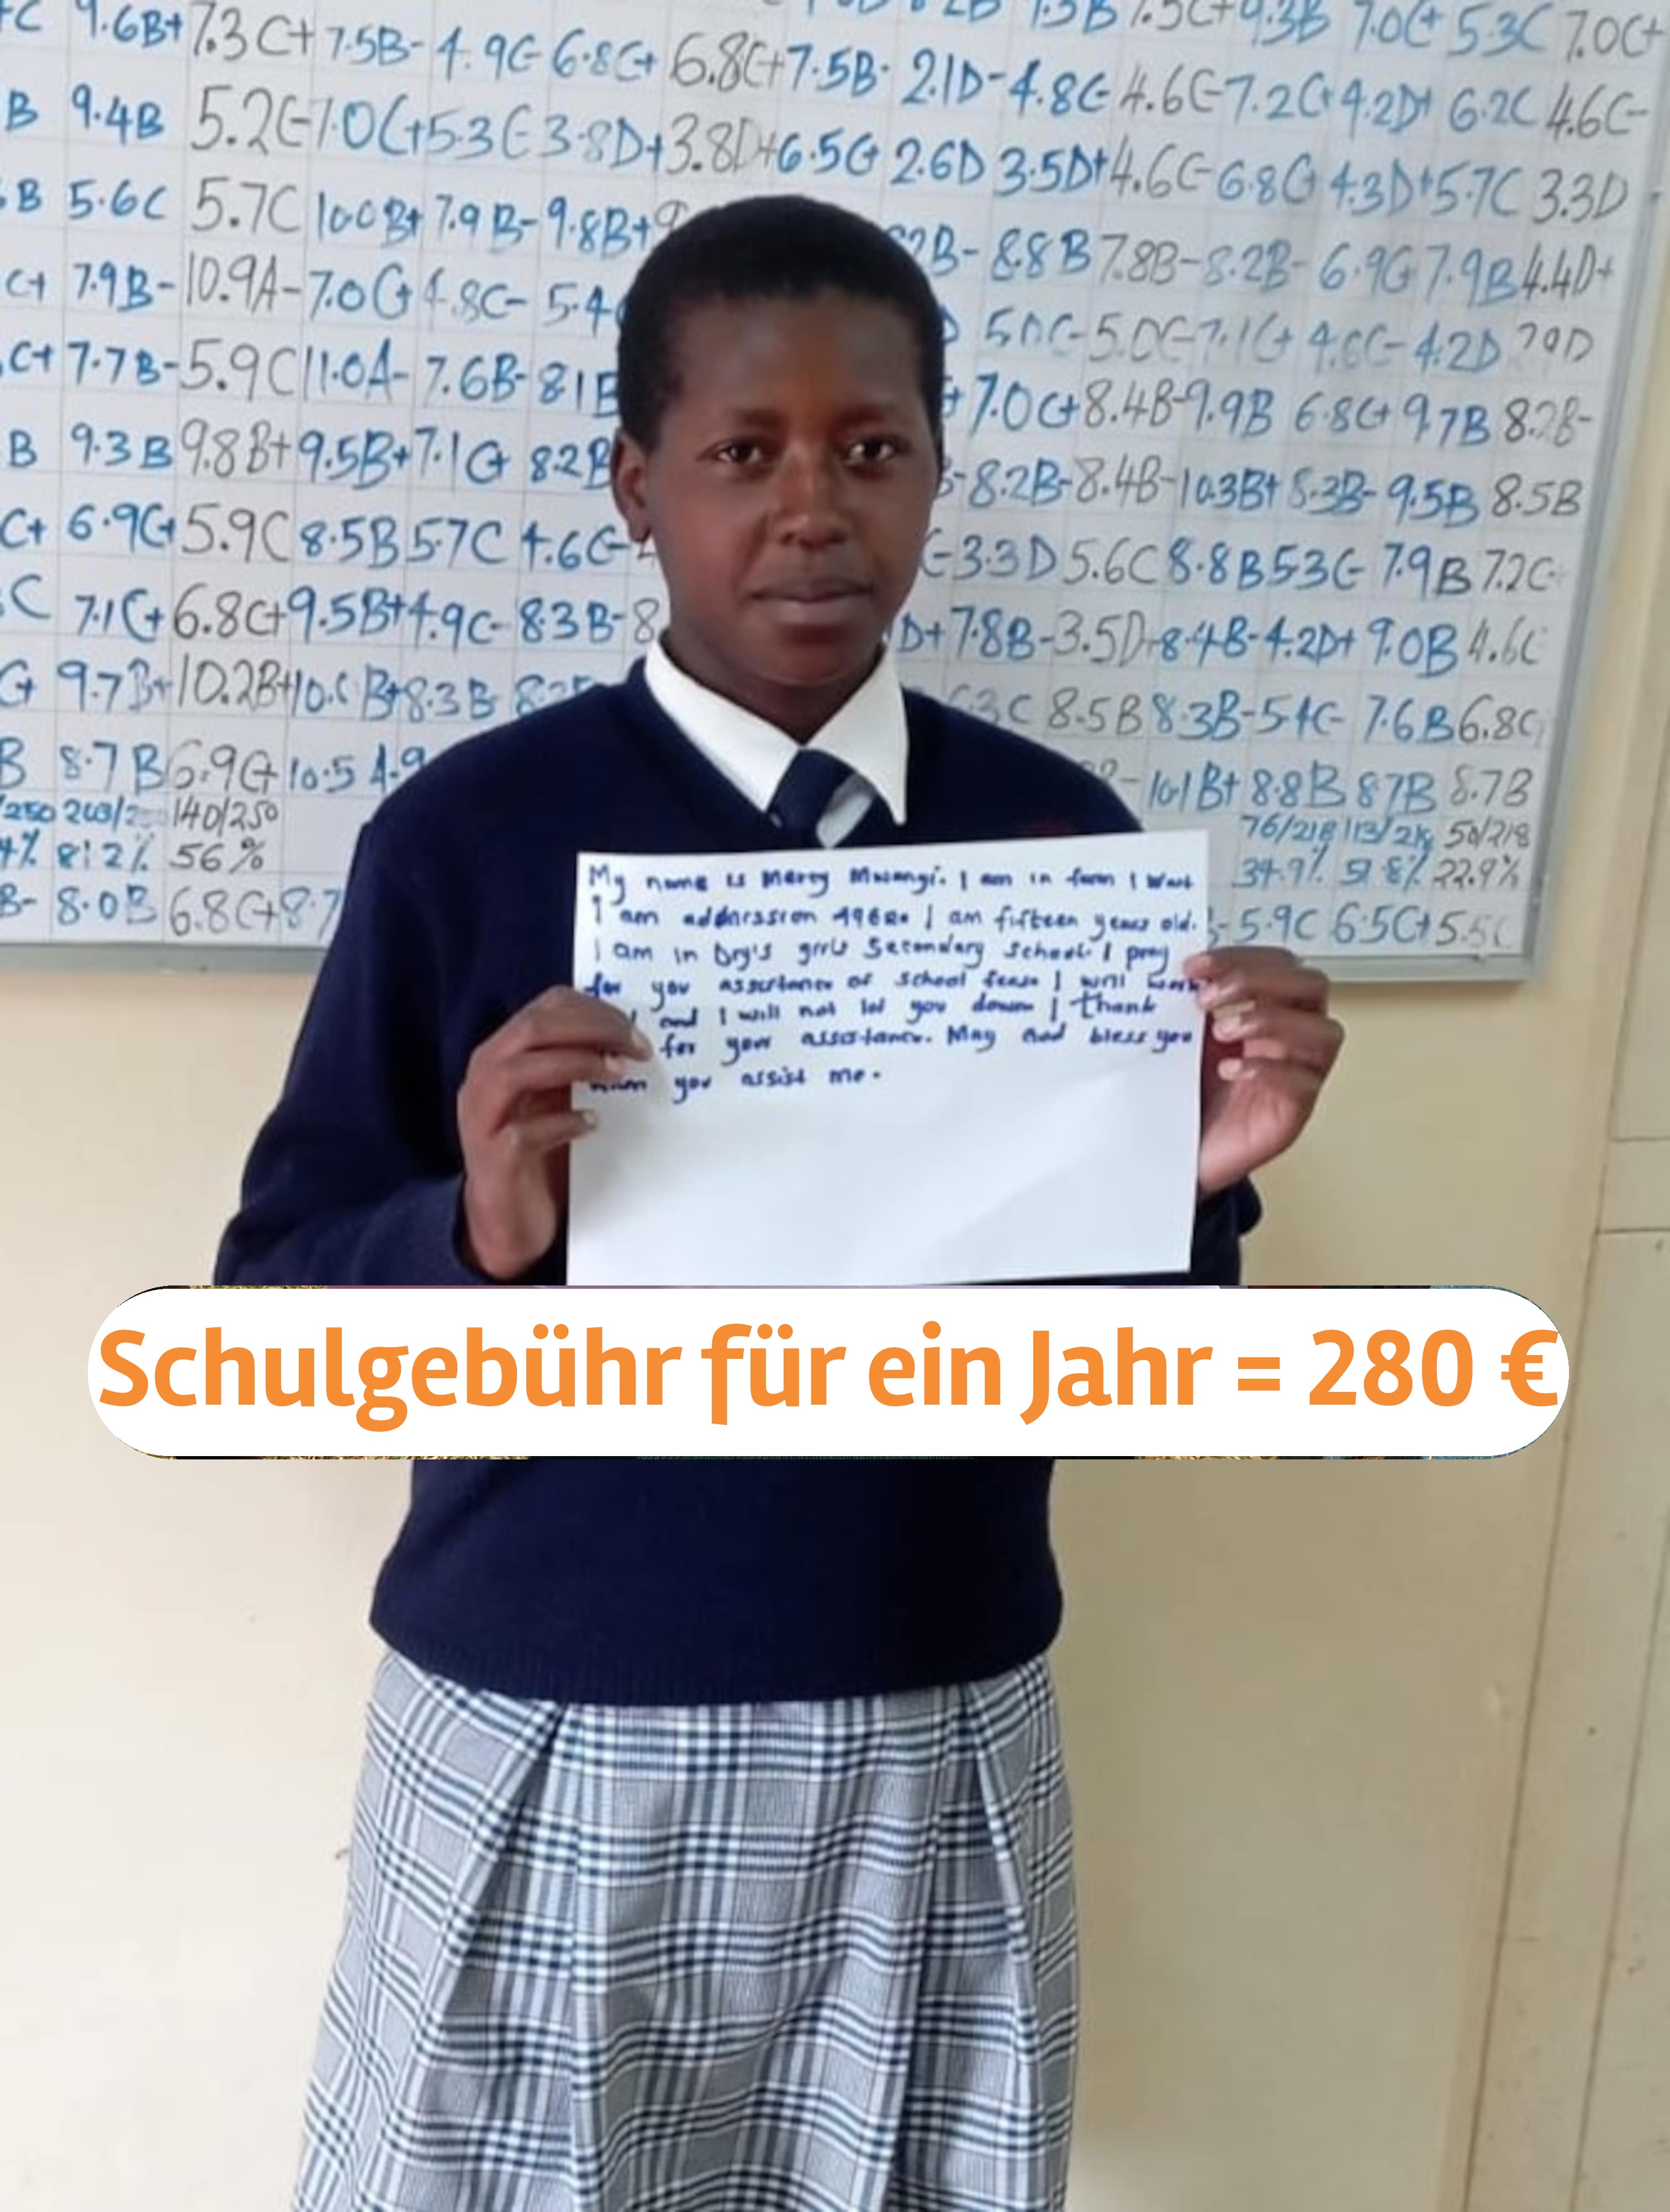 9.6B+ 7.3C+ 7.5B- 4.9C- 6.8C+ 6.8C+ 7.5B- 2.1D- 4.8C- 4.6C- 7.2C+ 4.2D+ 6.2C 4.6C-
B 9.4B 5.2C- 7.0C+ 5.3C- 3.8D+ 3.8D+ 6.5C+ 2.6D 3.5D+ 4.6C- 6.8C+ 4.3D+ 5.7C 3.3D
B 5.6C 5.7C 10.0B+ 7.9B- 9.8B+ 8.8B 7.8B- 8.2B- 6.9C+ 7.9B 4.4D+
C+ 7.9B- 10.9A- 7.0C+ 4.8C- 5.0C- 7.1C+ 4.6C- 4.2D
C+ 7.7B- 5.9C 11.0A- 7.6B- 7.0C+ 8.4B- 9.9B 6.8C+ 9.7B
B 9.3B 9.8B+ 9.5B+ 7.1C+ 8.2B 8.2B- 8.4B- 10.3B+ 8.3B- 9.5B 8.5B
C+ 6.9C+ 5.9C 8.5B 5.7C 4.6C- 3.3D 5.6C 8.8B 5.3C- 7.9B 7.2C
C 7.1C+ 6.8C+ 9.5B+ 4.9C- 8.3B- D+ 7.8B- 3.5D 8.4B- 4.2D+ 9.0B 4.6C
C+ 9.7B+ 10.2B+ 8.3B 8.5B 8.3B- 5.4C- 7.6B 6.8C
B 8.7B 6.9C+ 10.5 A- 10.1B+ 8.8B 8.7B 8.7B
140/250 76/218 113/218 50/218
81.2% 56% 34.9% 51.8% 22.9%
B- 8.0B 6.8C+ 5.9C 6.5C+
My name is Mercy Mwangi. I am in form 1 West
I am I am fifteen years old.
I am in girls Secondary School. I pray
for you assistance of school I will work
and I will not let you down I thank
for your assistance. May bless you
you assist me.
Schulgebühr für ein Jahr = 280 €